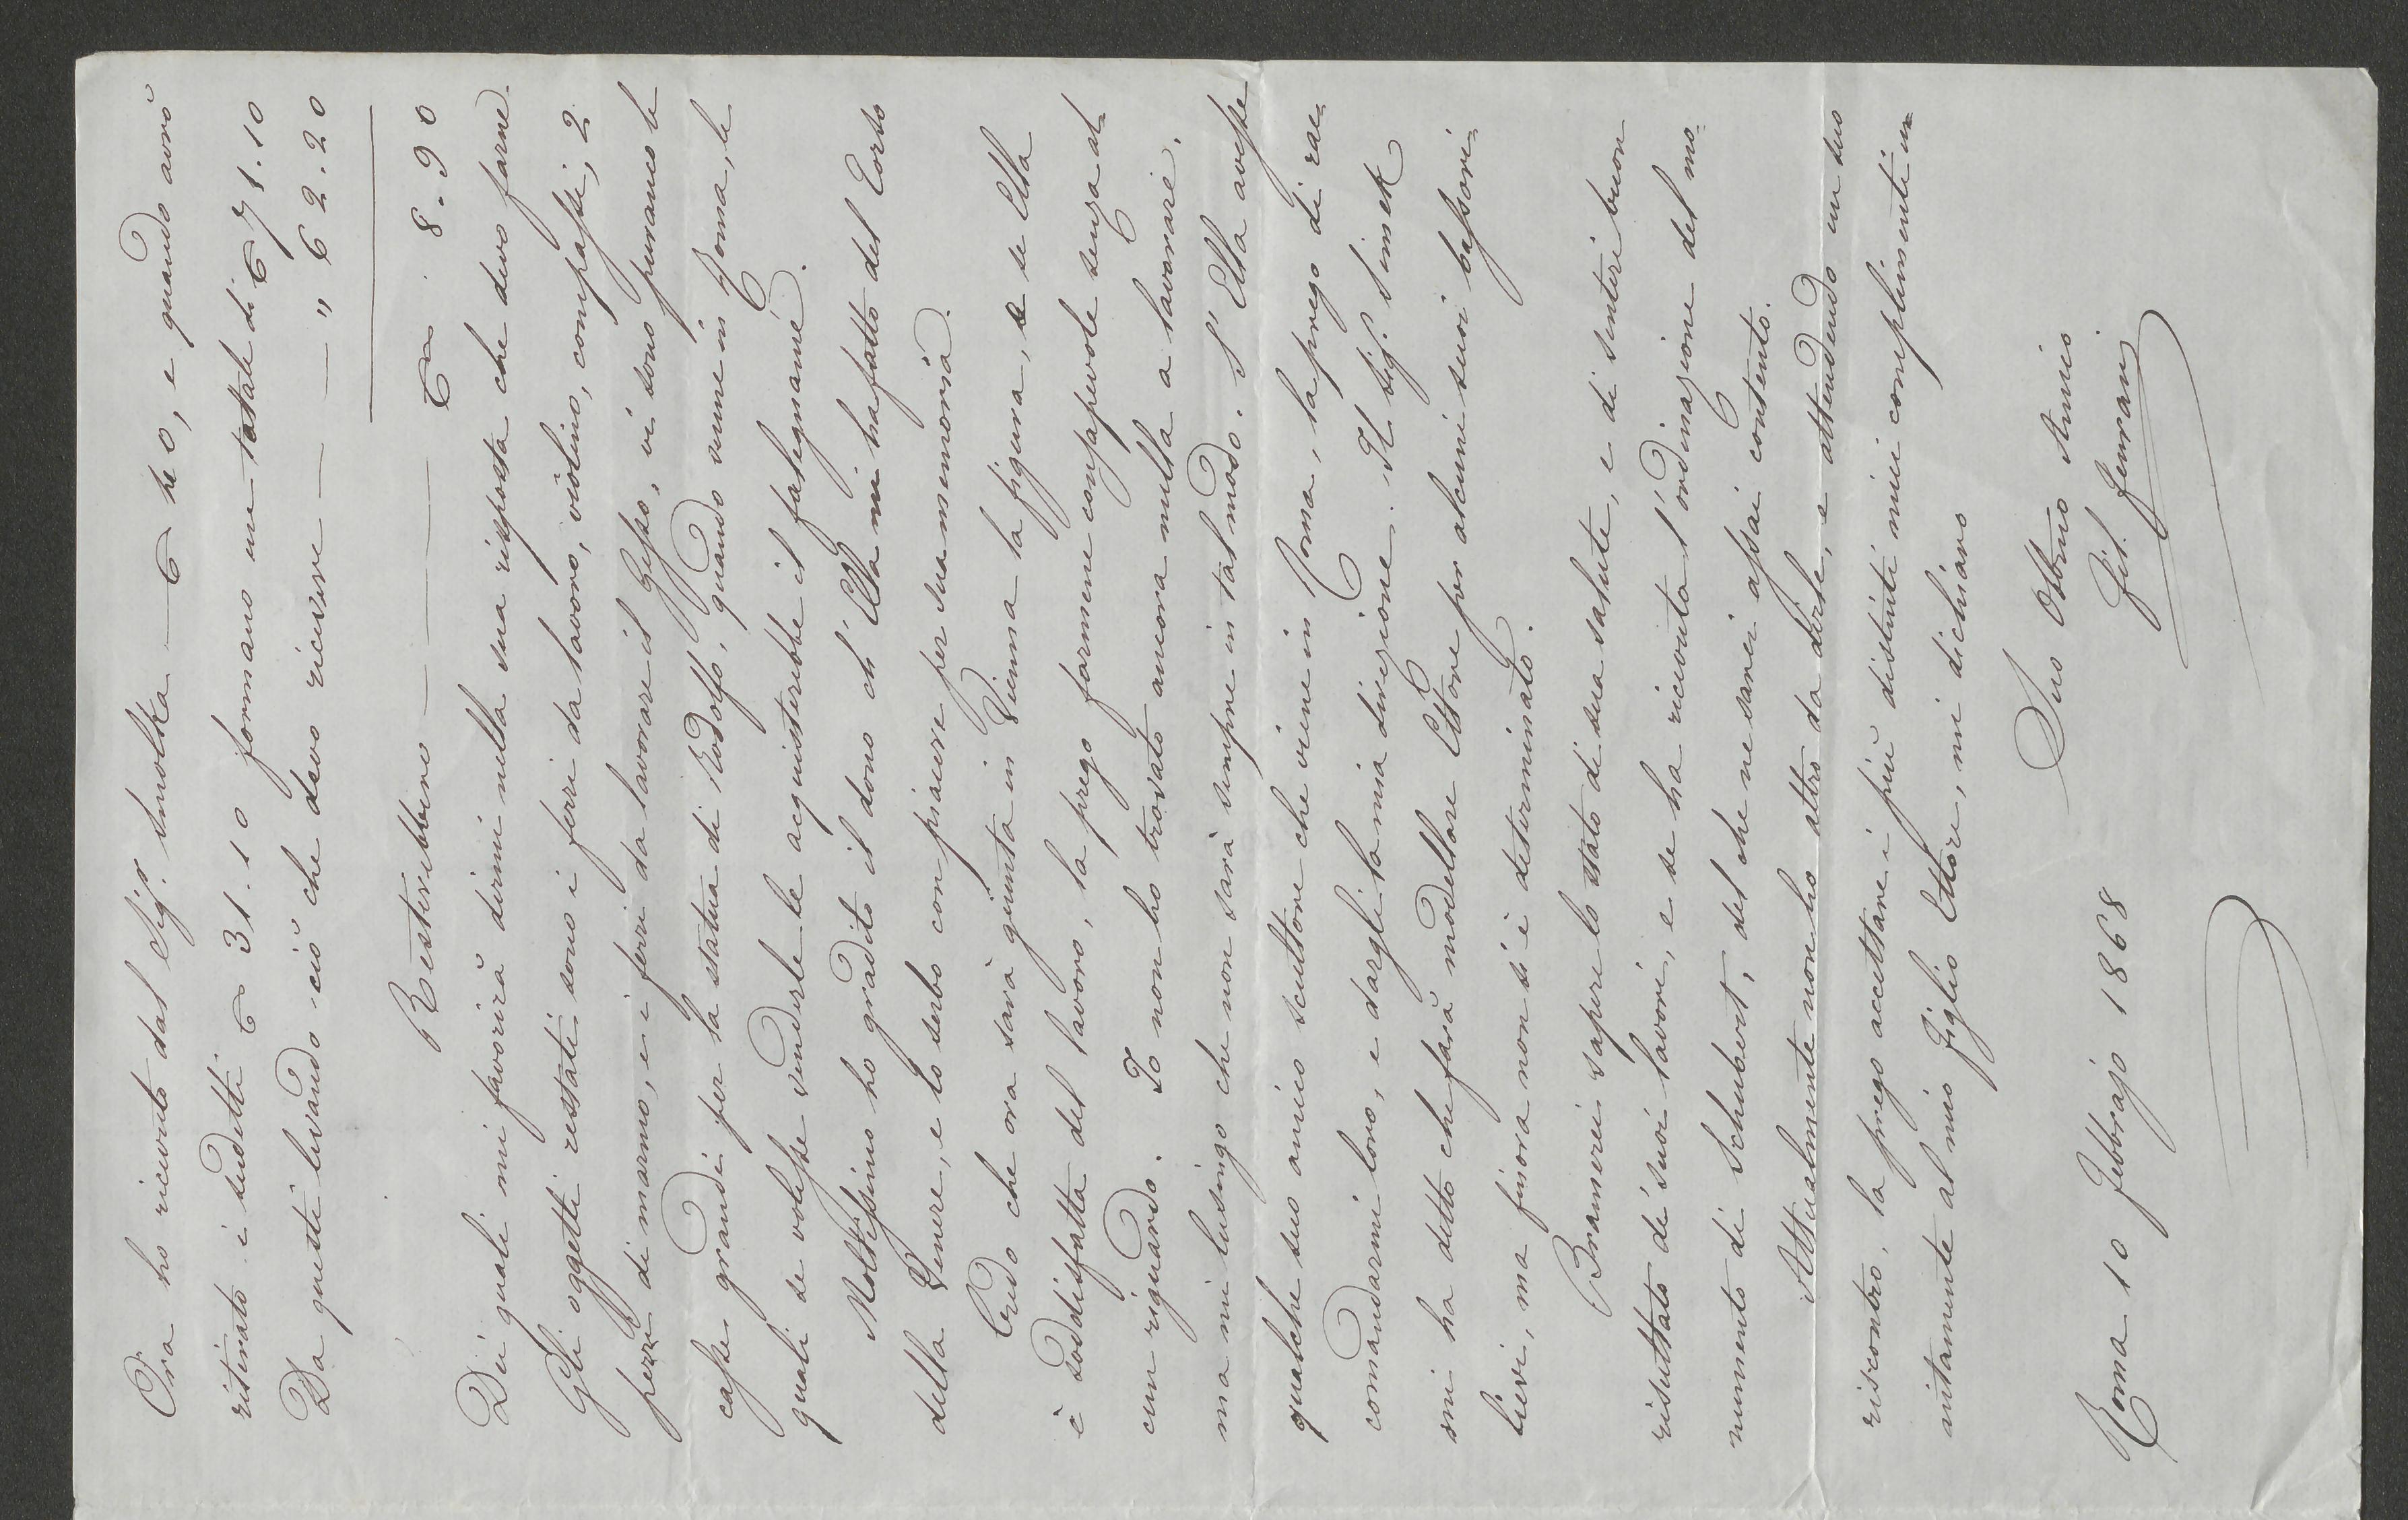 Ora ho ricevuto dal Sigr. Smolka — 40, e quando avrò
ritirato i sudetti 31.10 formano un totale di 71.10
Da questi levando ciò che devo ricevere — — „ 62.20
Resterebbero — — — 8.90
Dei quali mi favorirà dirmi nella sua risposta che devo farne.
Gli oggetti restati sono i ferri da lavoro, violino, compassi, 2
pezzi di marmo, e i ferri da lavorare il gesso, vi sono puranco le
casse grandi per la statua di Rodolfo, quando venne in Roma, le
quali se volesse venderle le acquisterebbe il falegname.
Moltissimo ho gradito il dono ch' Ella mi ha fatto del Torso
della Venere, e lo serbo con piacere per sua memoria.
Credo che ora sarà giunta in Vienna la figura, e se Ella
è sodisfatta del lavoro, la prego farmene consapevole senza al=
cun riguardo. Io non ho trovato ancora nulla a lavorare,
ma mi lusingo che non sarà sempre in tal modo. S' Ella avesse
qualche suo amico scultore che viene in Roma, la prego di rac=
comandarmi loro, e dargli la mia direzione. Il Sigr. Simek
mi ha detto che farà modellare Ettore per alcuni suoi bassori=
lievi, ma finora non si è determinato.
Bramerei sapere lo stato di sua salute, e di sentire buon
risultato de' suoi lavori, e se ha ricevuta l'ordinazione del mo=
numento di Schubert, del che ne sarei assai contento.
Attualmente non ho altro da dirle, e attendendo un suo
riscontro, la prego accettare i più distinti miei complimenti un
nitamente al mio figlio Ettore, mi dichiaro
Suo Obbmo Amico
Fil.
Roma 10 Febbrajo 1868